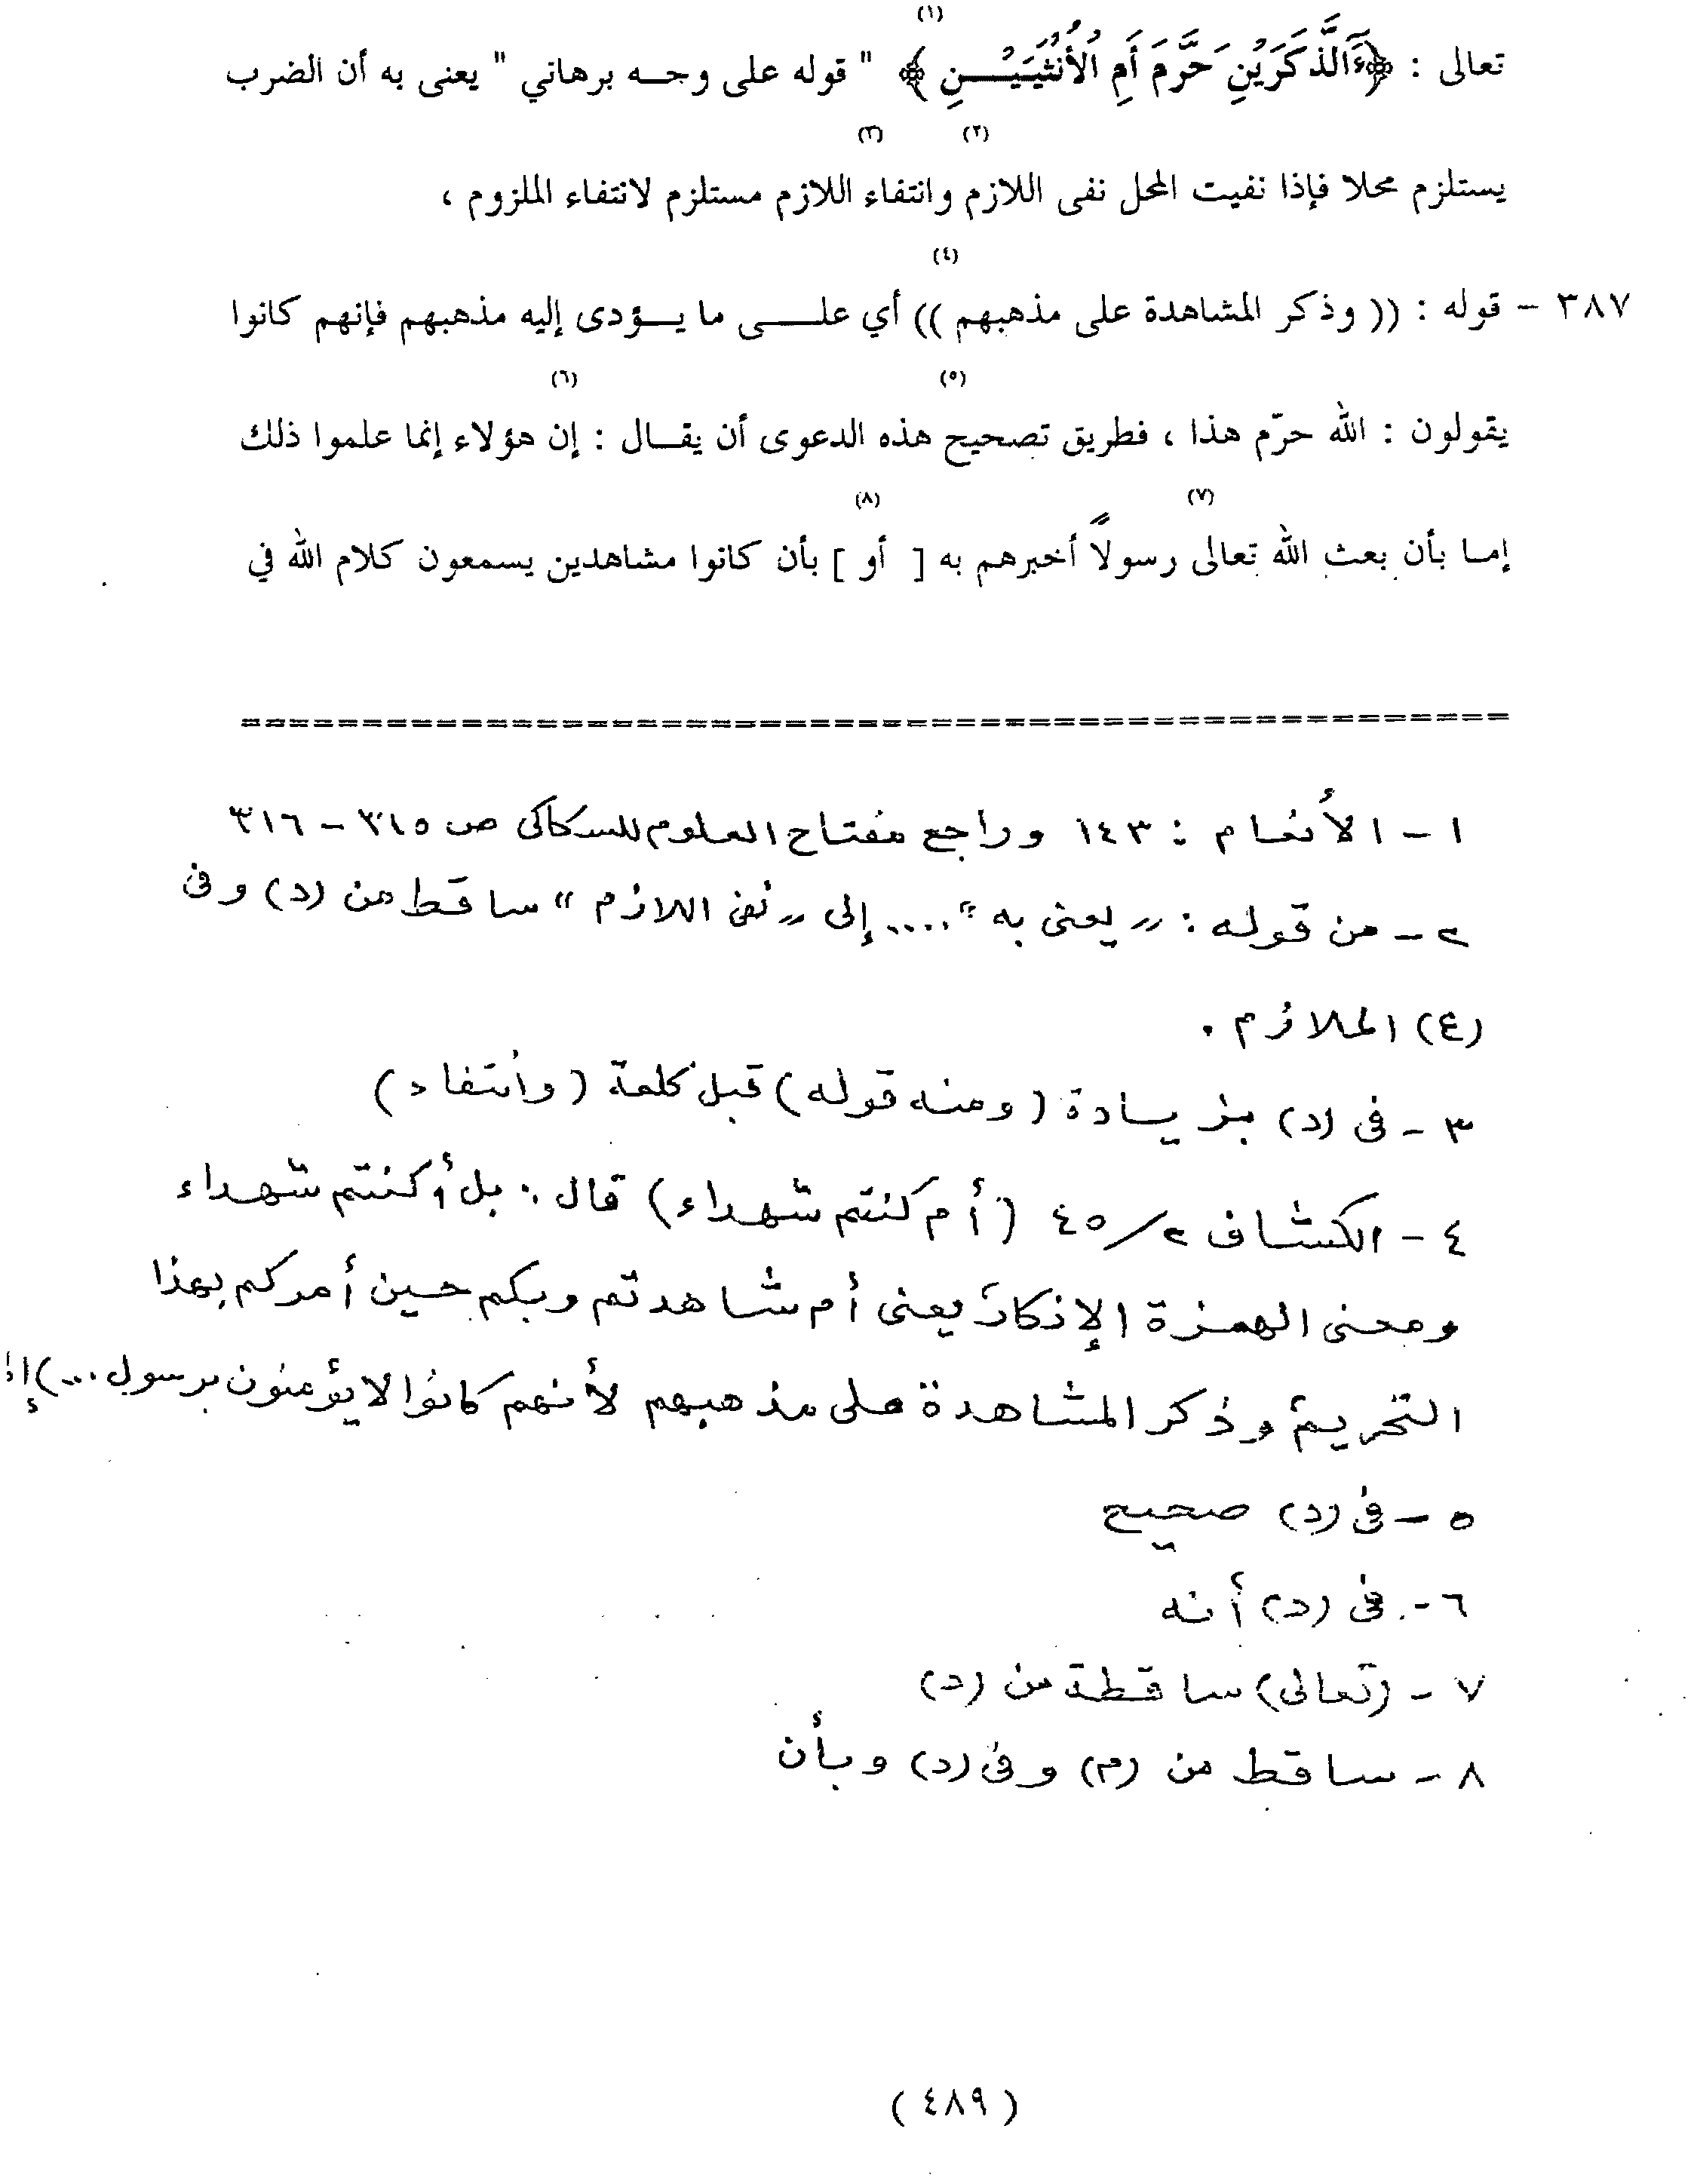 (١)
تعالى : ﴿ءَآلذَّكَرَيْنِ حَرَّمَ أَمِ الْأُنثَيَيْنِ ﴾ " قوله على وجه برهاني " يعنى به أن الضرب
(٢) (٣)
يستلزم محلا فإذا نفيت المحل نفى اللازم وانتفاء اللازم مستلزم لانتفاء الملزوم ،
(٤)
٣٨٧ – قوله : (( وذكر المشاهدة على مذهبهم )) أي على ما يؤدى إليه مذهبهم فإنهم كانوا
(٥) (٦)
يقولون : الله حرّم هذا ، فطريق تصحيح هذه الدعوى أن يقال : إن هؤلاء إنما علموا ذلك
(٧) (٨)
إما بأن بعث الله تعالى رسولاً أخبرهم به [ أو ] بأن كانوا مشاهدين يسمعون كلام الله في
====================================================
١ - الأنعام : ١٤٣ وراجع مفتاح العلوم للسكاكى ص ٣١٥ - ٣١٦
٢ - من قوله : " يعنى به " .... إلى " نفى اللازم " ساقط من (د) وفى
(ع) الملازم .
٣ - فى (د) بزيادة ( ومنه قوله ) قبل كلمة ( وانتفاء )
٤ - الكشاف ٢/٤٥ ( أم كنتم شهداء ) قال : بل أكنتم شهداء
ومعنى الهمزة الإنكار يعنى أم شاهدتم ربكم حين أمركم بهذا
التحريم وذكر المشاهدة على مذهبهم لأنهم كانوا لا يؤمنون برسول ...) إلخ
٥ - فى (د) صحيح
٦ - فى (د) أنه
٧ - (تعالى) ساقطة من (د)
٨ - ساقط من (م) وفى (د) وبأن
( ٤٨٩ )